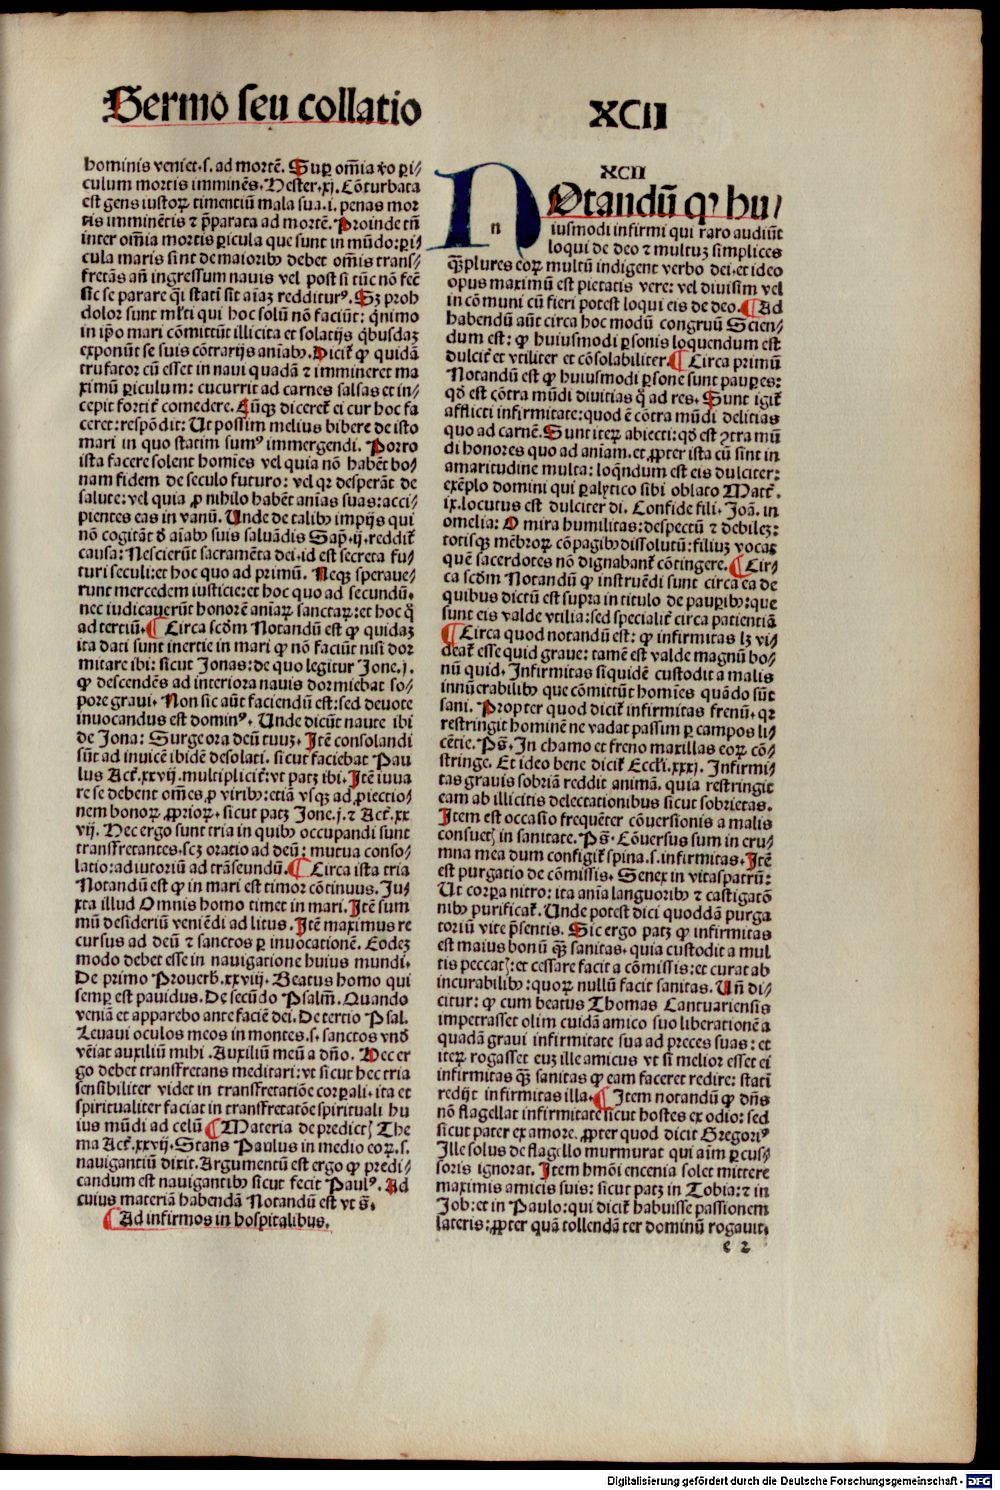 Sermo seu collatio
XCII
hominis veniet.s. ad mortē. Suꝑ om̄ia v̄o ꝑi/
culum mortis imminēs. Hester.xj. Cōturbata
est gens iustoꝝ timentiū mala sua.i. penas mor
tis imminētis ⁊ p̄parata ad mortē. Proinde tn̄
inter om̄ia mortis ꝑicula que sunt in mūdo:ꝑi/
cula maris sint de maioribꝰ debet om̄is trans/
fretās an̄ ingressum nauis vel post si tūc nō fec̄
sic se parare ꝙ̄i statī sit aīaꝫ redditurꝰ. Sꝫ proh
dolor sunt ml̄ti qui hoc solū nō faciūt: q̄nimo
in ip̄o mari cōmittūt illicita et solatijs q̄busdaꝫ
exponūt se suis cōtrarijs aniabꝰ. Dicit̄ ꝙ quidā
trufator cū esset in naui quadā ⁊ immineret ma
ximū ꝑiculum: cucurrit ad carnes salsas et in/
cepit fortit̄ comedere. Cūqꝫ diceret̄ ei cur hoc fa
ceret:respōdit: Ut possim melius bibere de isto
mari in quo statim sumꝰ immergendi. Porro
ista facere solent homīes vel quia nō habēt bo/
nam fidem de seculo futuro: vel qꝛ desperāt de
salute: vel quia ꝓ nihilo habēt anīas suas:acci/
pientes eas in vanū. Unde de talibꝰ impijs qui
nō cogitāt d̄ aīabꝰ suis saluādis Sap̄.ij.reddit̄
causa: Nescierūt sacramēta dei.id est secreta fu/
turi seculi:et hoc quo ad primū. Neqꝫ speraue/
runt mercedem iusticie:et hoc quo ad secundū.
nec iudicauerūt honorē aniaꝝ sanctaꝝ:et hoc q̊
ad tertiū. ¶ Circa scd̄m Notandū est ꝙ quidaꝫ
ita dati sunt inertie in mari ꝙ nō faciūt nisi dor
mitare ibi: sicut Jonas:de quo legitur Jone.j.
ꝙ descendēs ad interiora nauis dormiebat so/
pore graui. Non sic aūt faciendū est:sed deuote
inuocandus est dominꝰ. Unde dicūt naute ibi
de Jona: Surge ora deū tuuꝫ. Itē consolandi
sūt ad inuicē ibidē desolati. sicut faciebat Pau
lus Act̄.xxvij.multiplicit̄:vt patꝫ ibi. Itē iuua
re se debent om̄es ꝓ viribꝰ:etiā vsqꝫ ad ꝓiectio/
nem bonoꝝ ꝓprioꝝ. sicut patꝫ Jone.j.⁊ Act̄.xx
vij. Hec ergo sunt tria in quibꝰ occupandi sunt
transfretantes.scꝫ oratio ad deū: mutua conso/
latio:adiutoriū ad trāseundū. ¶ Circa ista tria
Notandū est ꝙ in mari est timor cōtinuus. Ju/
xta illud Omnis homo timet in mari. Itē sum
mū desideriū veniēdi ad litus. Itē maximus re
cursus ad deū ⁊ sanctos ꝑ inuocationē. Eodeꝫ
modo debet esse in nauigatione huius mundi.
De primo Prouerb̄.xxviij. Beatus homo qui
semꝑ est pauidus. De secūdo Psalm̄. Quando
veniā et apparebo ante faciē dei. De tertio Psal.
Leuaui oculos meos in montes.s. sanctos vnd̄
vēiat auxiliū mihi. Auxiliū meū a dn̄o. Hec er
go debet transfretans meditari:vt sicut hec tria
sensibiliter videt in transfretatiōe corꝑali. ita et
spiritualiter faciat in transfretatōe spirituali hu
ius mūdi ad celū ¶ Materia de predict̄ The
ma Act̄.xxvij. Stans Paulus in medio eoꝝ.s.
nauigantiū dixit. Argumentū est ergo ꝙ predi/
candum est nauigantibꝰ sicut fecit Paulꝰ. Ad
cuius materiā habendā Notandū est vt s̄.
¶ Ad infirmos in hospitalibus.
XCII
n
NOtandū qꝛ hu/
iusmodi infirmi qui raro audiūt
loqui de deo ⁊ multuꝫ simplices
q̄ꝫplures eoꝝ multū indigent verbo dei.et ideo
opus maximū est pietatis vere: vel diuisim vel
in cōmuni cū fieri potest loqui eis de deo. ¶ Ad
habendū aūt circa hoc modū congruū Scien/
dum est: ꝙ huiusmodi ꝑsonis loquendum est
dulcit̄ et vtiliter et cōsolabiliter. ¶ Circa primū
Notandū est ꝙ huiusmodi ꝑsone sunt pauꝑes:
qd̄ est cōtra mūdi diuitias q̊ ad res. Sunt igit̄
afflicti infirmitate:quod ē cōtra mūdi delitias
quo ad carnē. Sunt iteꝝ abiecti:qd̄ est ꝯtra mū
di honores quo ad aniam.et ꝓpter ista cū sint in
amaritudine multa: loq̄ndum est eis dulciter:
exēplo domini qui ꝑalytico sibi oblato Matt̄.
ix.locutus est dulciter dī. Confide fili. Joā. in
omelia: O mira humilitas:despectū ⁊ debileꝫ:
totisqꝫ mēbroꝝ cōpagibꝰ dissolutū:filiuꝫ vocat
quē sacerdotes nō dignabant̄ cōtingere. ¶ Cir/
ca scd̄m Notandū ꝙ instruēdi sunt circa ea de
quibus dictū est supra in titulo de pauꝑibꝰ:que
sunt eis valde vtilia:sed specialit̄ circa patientiā
¶ Circa quod notandū est: ꝙ infirmitas lꝫ vi/
deat̄ esse quid graue: tamē est valde magnū bo/
nū quid. Infirmitas siquidē custodit a malis
innūerabilibꝰ que cōmittūt homīes quādo sūt
sani. Propter quod dicit̄ infirmitas frenū. qꝛ
restringit hominē ne vadat passim ꝑ campos li/
cētie. Ps̄. In chamo et freno maxillas eoꝝ cō/
stringe. Et ideo bene dicit̄ Eccl̄i.xxxj. Infirmi/
tas grauis sobriā reddit animā. quia restringit
eam ab illicitis delectationibus sicut sobrietas.
Item est occasio frequēter cōuersionis a malis
consuet̄ in sanitate. Ps̄. Cōuersus sum in eru/
mna mea dum configit̄ spina.s.infirmitas. Itē
est purgatio de cōmissis. Senex in vitaspatrū:
Ut corꝑa nitro: ita aniā languoribꝰ ⁊ castigatō
nibꝰ purificat̄. Unde potest dici quoddā purga
toriū vite p̄sentis. Sic ergo patꝫ ꝙ infirmitas
est maius bonū q̄ꝫ sanitas. quia custodit a mul
tis peccat̄:et cessare facit a cōmissis:et curat ab
incurabilibꝰ:quoꝝ nullū facit sanitas. Un̄ di/
citur: ꝙ cum beatus Thomas Cantuariensis
impetrasset olim cuidā amico suo liberationē a
quadā graui infirmitate sua ad preces suas: et
iteꝝ rogasset euꝫ ille amicus vt si melior esset ei
infirmitas q̄ꝫ sanitas ꝙ eam faceret redire: statī
redijt infirmitas illa. ¶ Item notandū ꝙ dn̄s
nō flagellat infirmitate sicut hostes ex odio: sed
sicut pater ex amore. ꝓpter quod dicit Gregoriꝰ
Ille solus de flagello murmurat qui aīm ꝑcus/
soris ignorat. Item hmōi encenia solet mittere
maximis amicis suis: sicut patꝫ in Tobia:⁊ in
Job:et in Paulo:qui dicit̄ habuisse passionem
lateris:ꝓpter quā tollendā ter dominū rogauit.
e 2
Digitalisierung gefördert durch die Deutsche Forschungsgemeinschaft - DFG